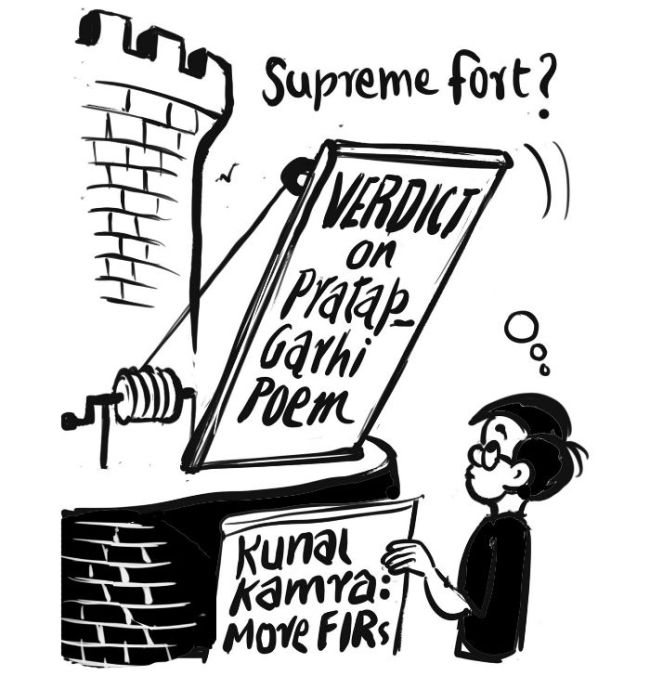 Supreme fort?
VERDICT
on
Pratap-
Garhi
Poem
Kunal
Kamra:
More FIRs